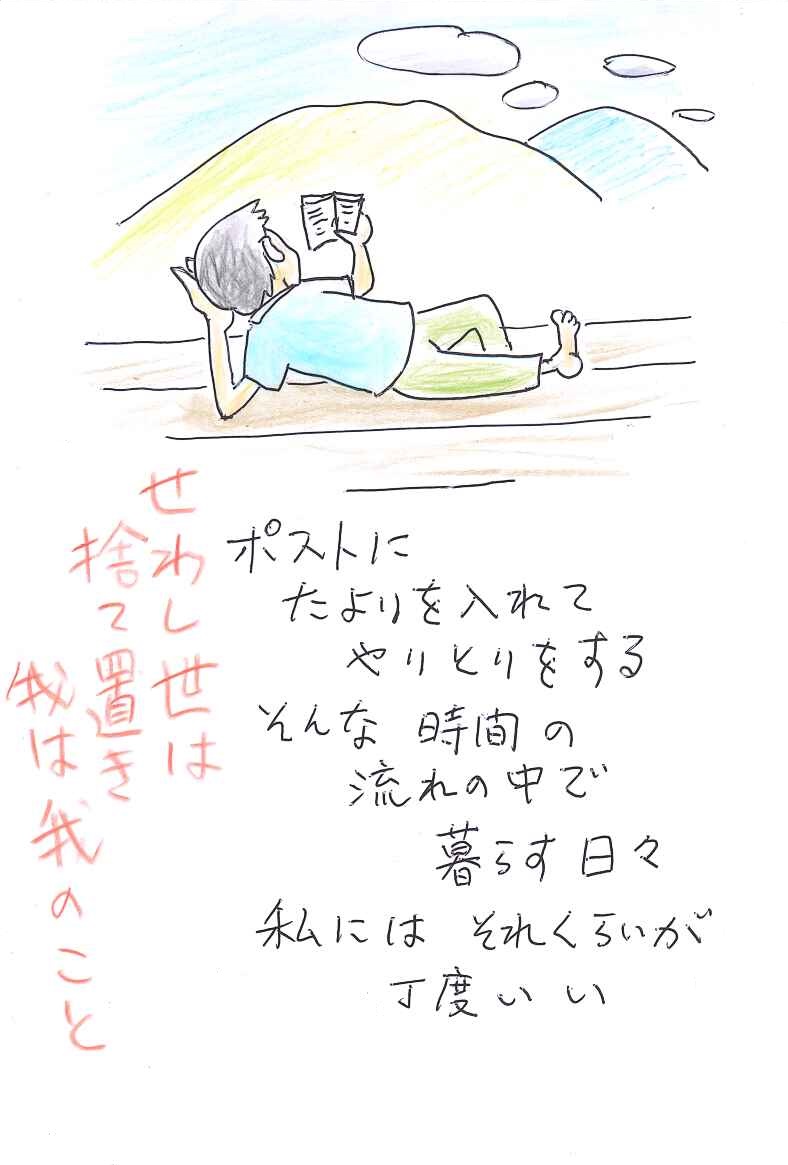 ポストに
たよりを入れて
やりとりをする
そんな時間の
流れの中で
暮らす日々
私にはそれくらいが
丁度いい
せわし世は
捨て置き
我は我のこと